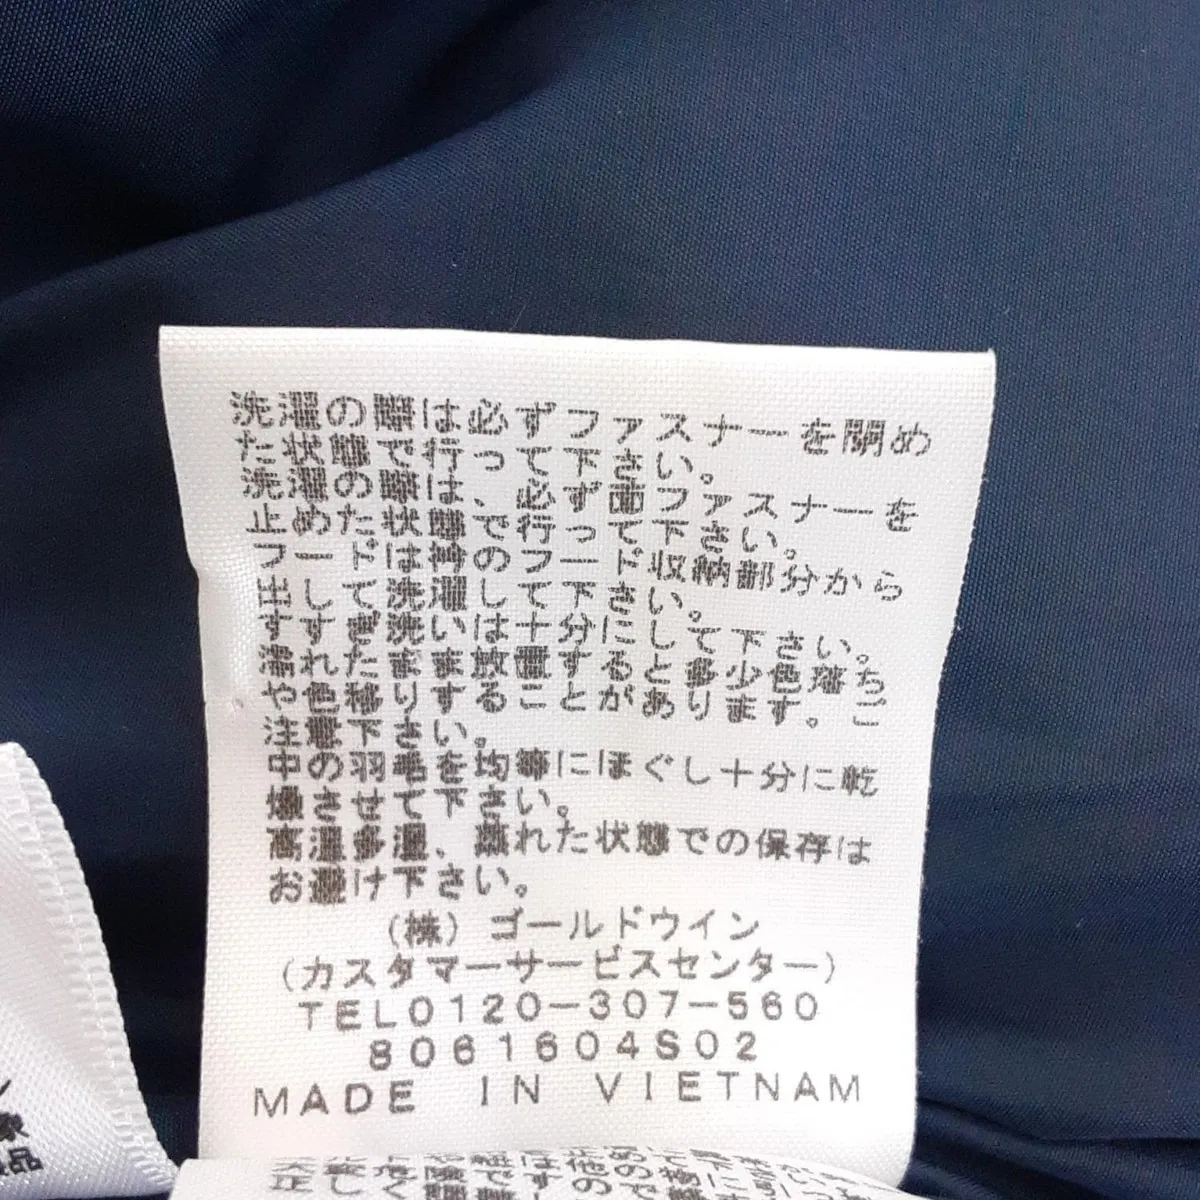 洗濯の際は必ずファスナーを閉め
た状態で行って下さい。
洗濯の際は、必ず面ファスナーを
止めた状態で行って下さい。
フードは衿のフード収納部分から
出して洗濯して下さい。
すすぎ洗いは十分にして下さい。
濡れたまま放置すると多少色落ち
や色移りすることがあります。ご
注意下さい。
中の羽毛を均等にほぐし十分に乾
燥させて下さい。
高温多湿、蒸れた状態での保存は
お避け下さい。
(株) ゴールドウイン
(カスタマーサービスセンター)
TEL0120-307-560
8061604S02
MADE IN VIETNAM